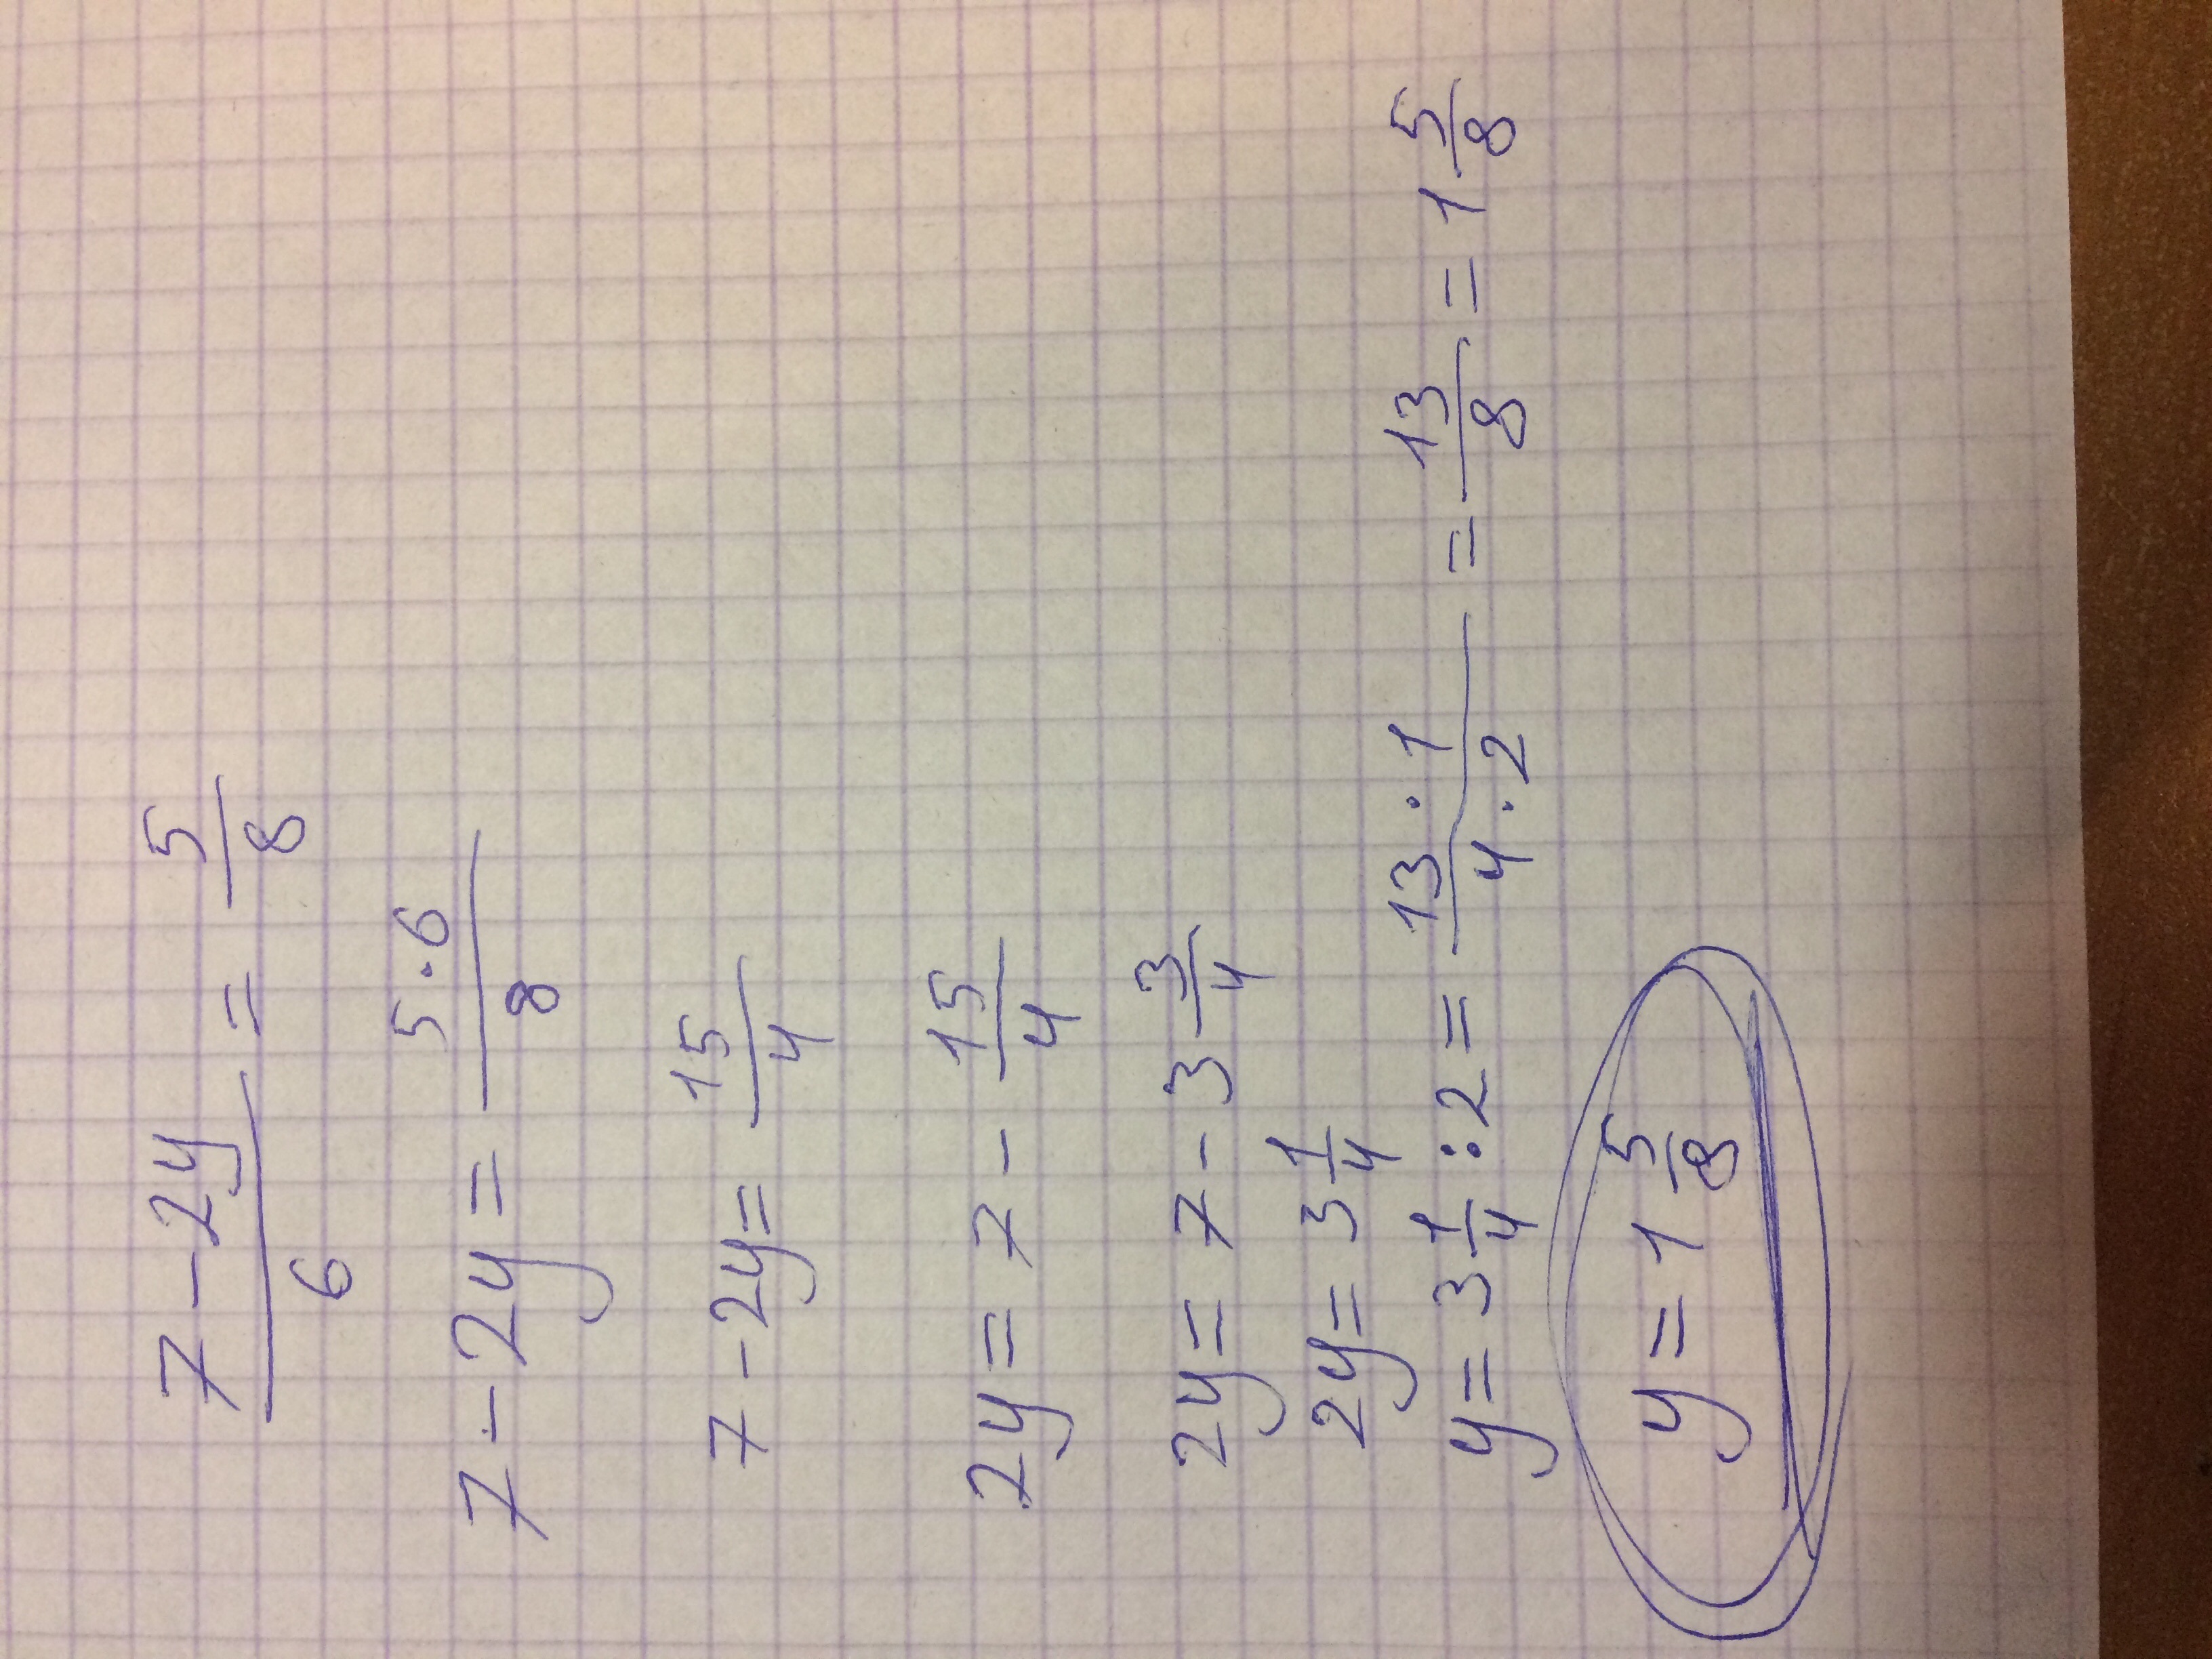 7-2y/6 = 5/8
7-2y = 5·6/8
7-2y = 15/4
2y = 7 - 15/4
2y = 7 - 3 3/4
2y = 3 1/4
y = 3 1/4 : 2 = 13·1/4·2 = 13/8 = 1 5/8
y = 1 5/8